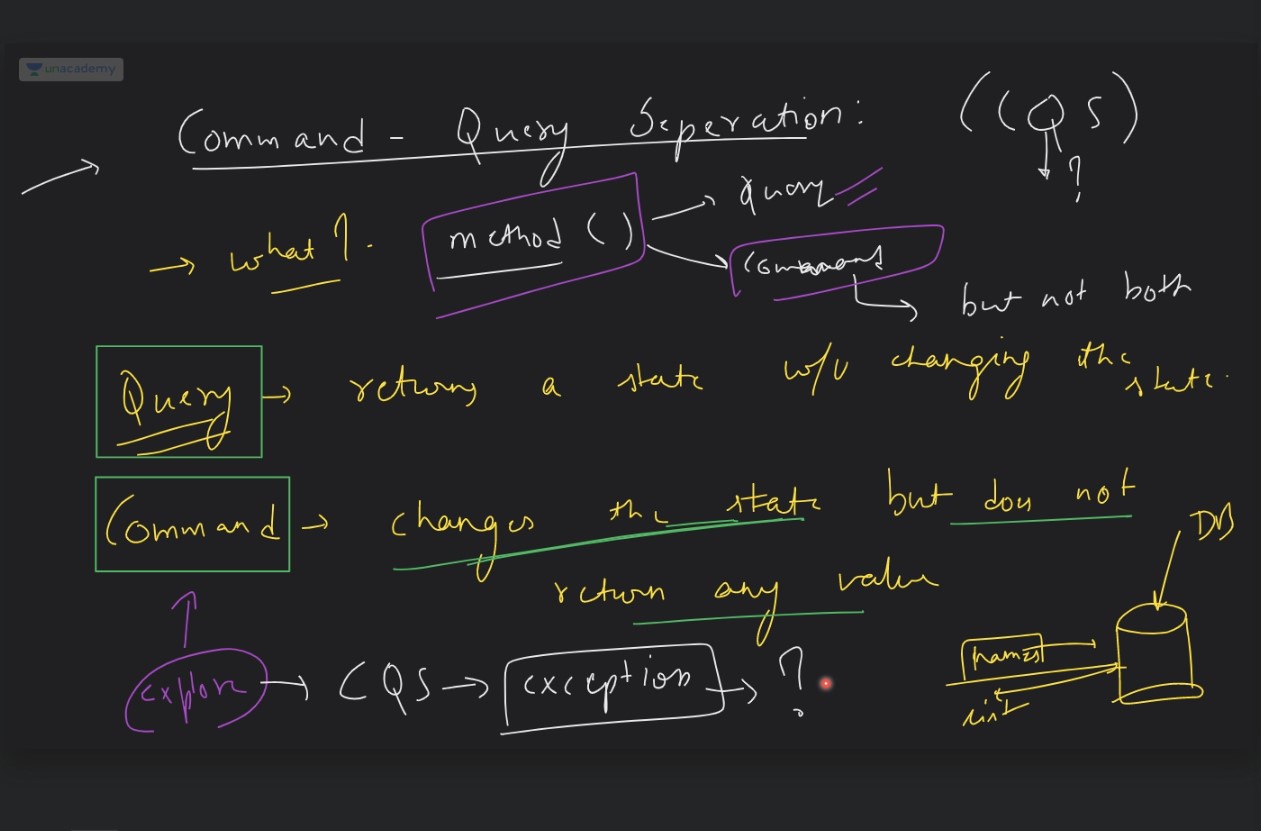 unacademy
Command - Query Seperation: (CQS)
?
→ what?. method() → Query
Command
→ but not both
Query → returns a state w/o changing the state.
Command → changes the state but does not
return any value
DB
names
list
explore → CQS → exception → ?